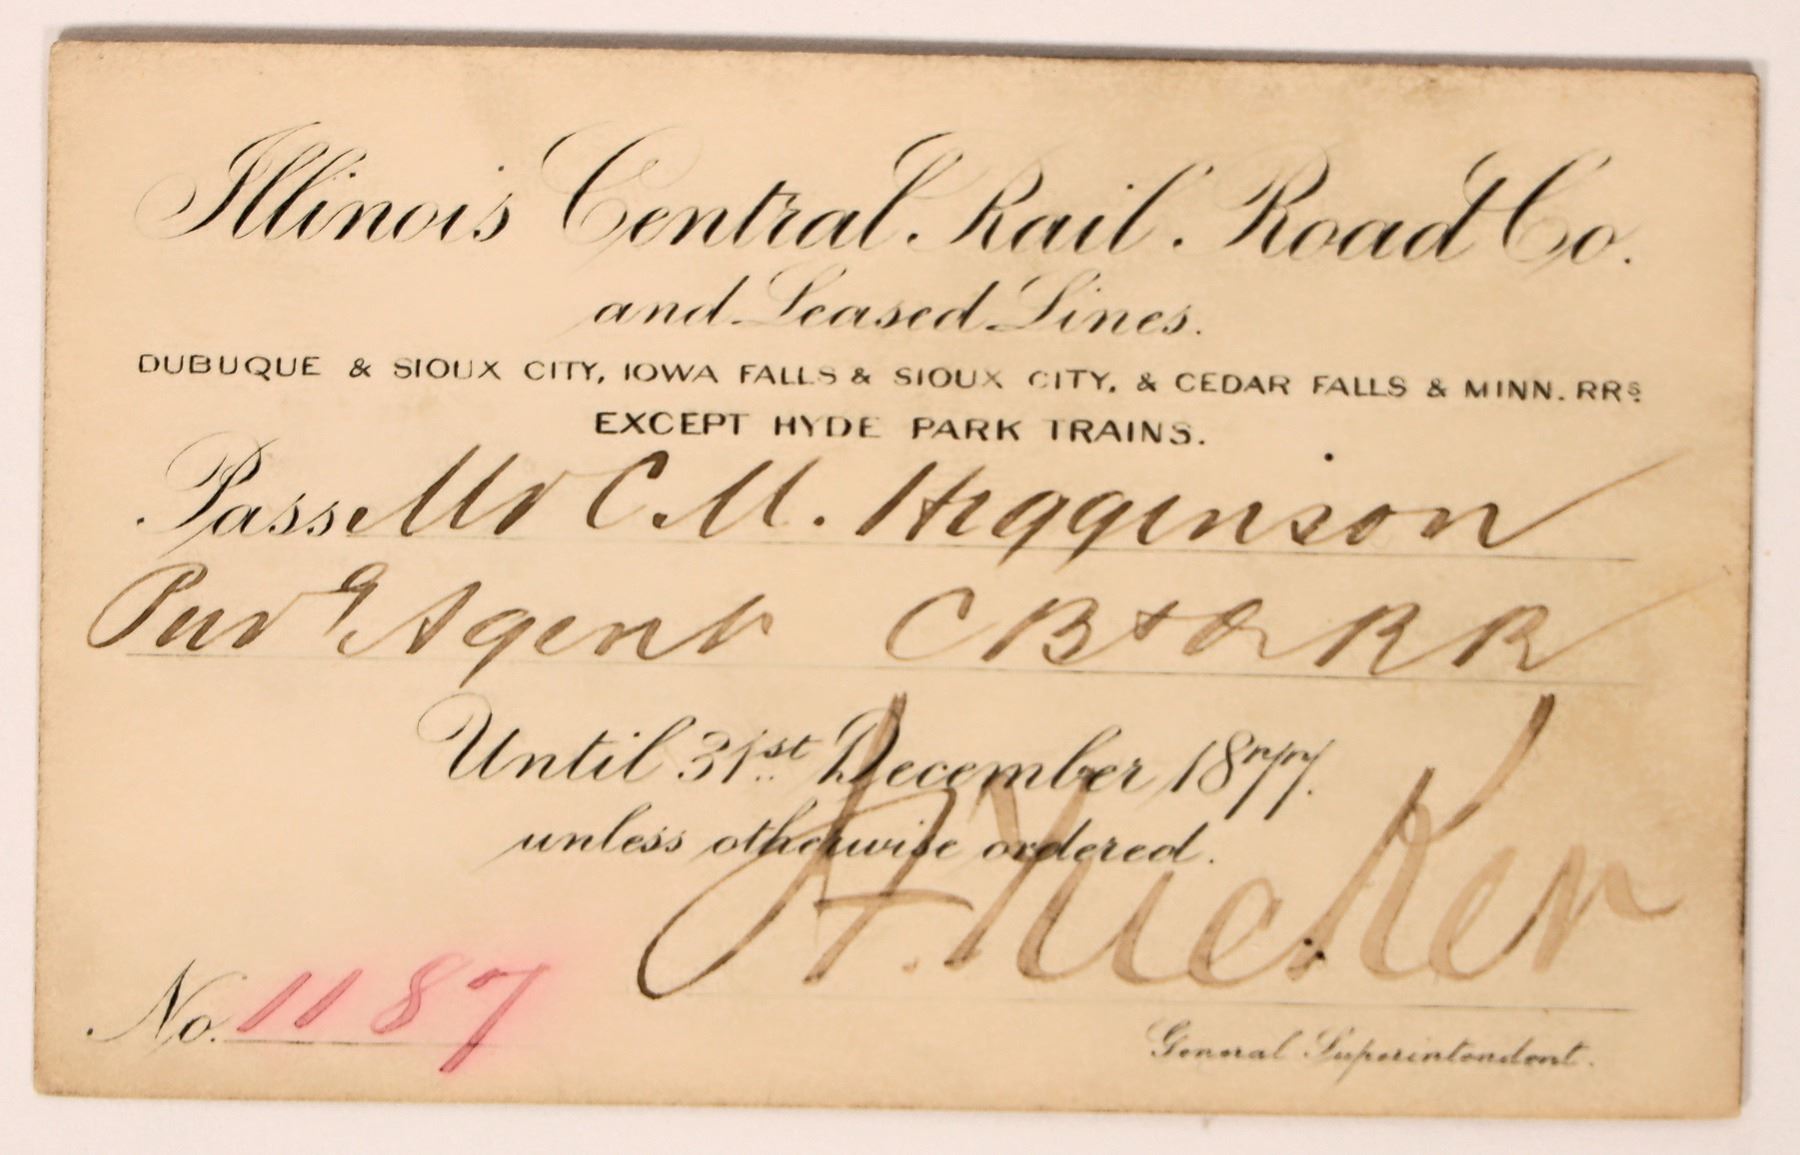 Illinois Central Rail Road Co.
and Leased Lines.
DUBUQUE & SIOUX CITY, IOWA FALLS & SIOUX CITY, & CEDAR FALLS & MINN. RRs.
EXCEPT HYDE PARK TRAINS.
Pass Mr C. M. Higginson
Purg Agent C B & Q R R
Until 31st December 1877.
unless otherwise ordered.
J. Tucker
No. 1187
General Superintendent.